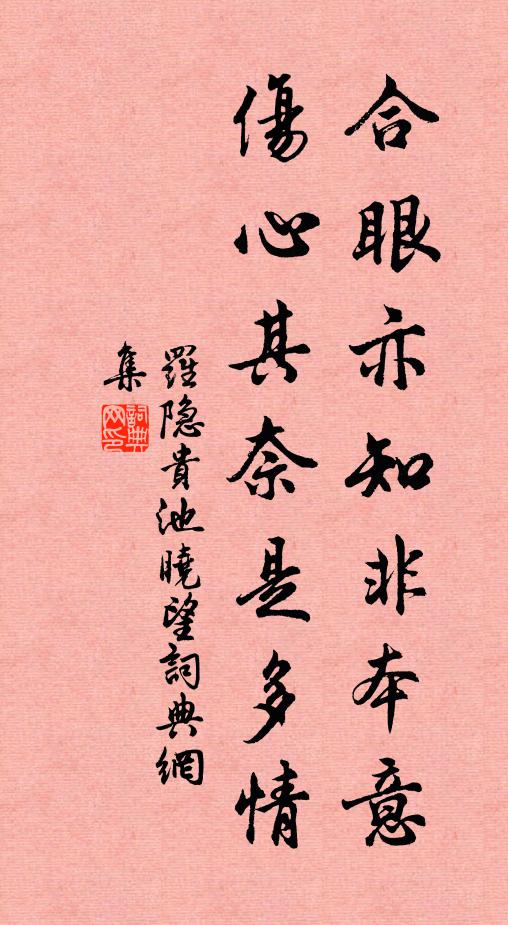 合眼亦知非本意
傷心其奈是多情
羅隐貴池曉望詞典網
集
詞典
网印